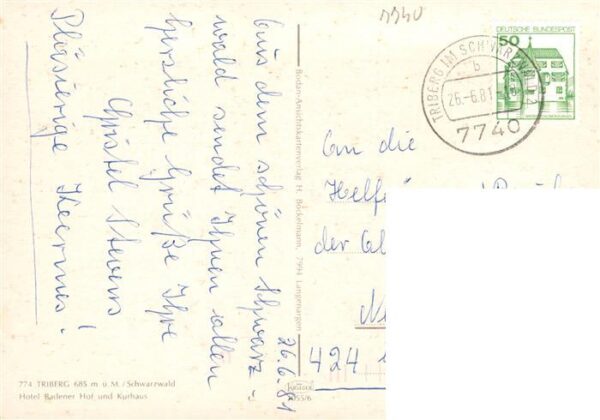 7740
DEUTSCHE BUNDESPOST
50
TRIBERG IM SCHWARZWALD 1
b
26.-6.81
7740
Aus dem schönen Schwarz-
wald sendet Ihnen allen
herzliche Grüße Ihre
Christel Stevens
!
Pläsierige Theernes!
26.6.81
Bodan-Ansichtskartenverlag H. Bockelmann, 7994 Langenargen
An die
Helfe
der
424
774 TRIBERG 685 m ü M./Schwarzwald
Hotel Badener Hof und Kurhaus